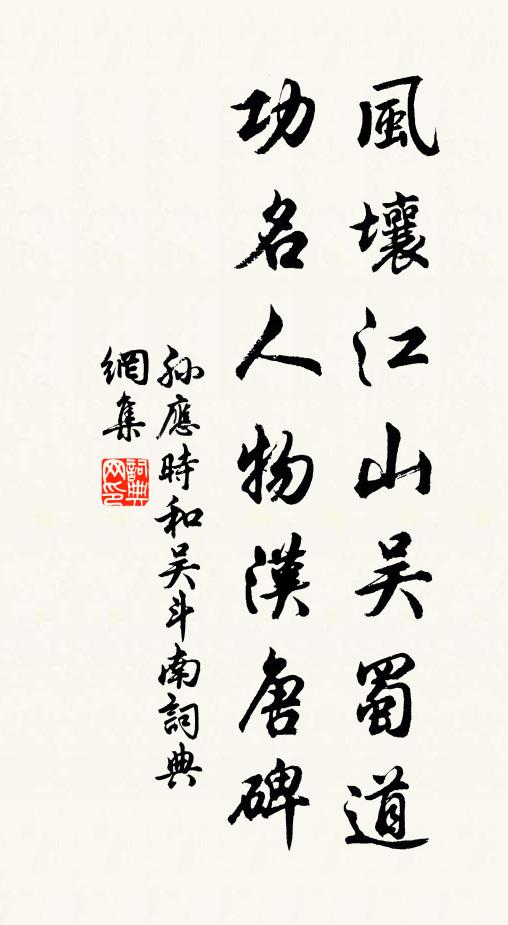 風壤江山吴蜀道
功名人物漢唐碑
孙應時和吴斗南詞典
網集
詞典
网印